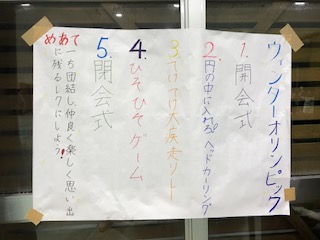 ウィンターオリンピック
1. 開会式
2. 円の中に入れろ! ヘッドカーリング
3. てけてけ大疾走リレー
4. ひそひそゲーム
5. 閉会式
めあて
一ち団結し仲良く楽しく思い出
に残るレクにしよう!